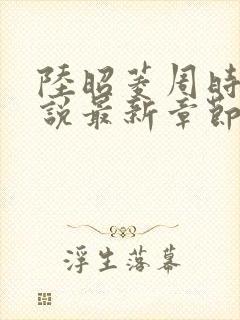 陸昭菱周時
說最新章節
浮生落幕